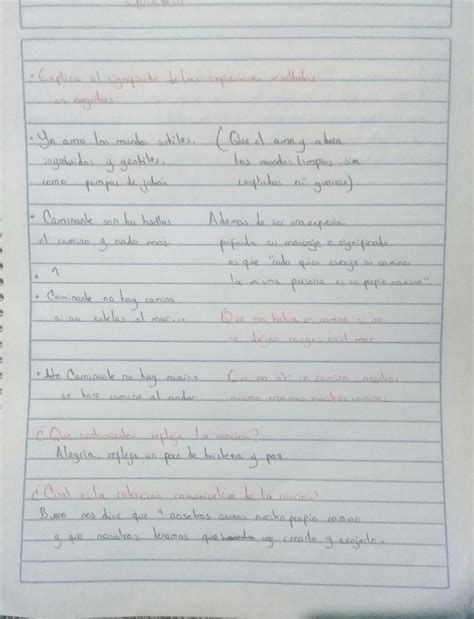 • Explica el significado de las expresiones resaltadas
en negritas
• Yo amo los mundos sutiles, (Que el ama y adora
ingrávidos y gentiles, los mundos limpios, sin
como pompas de jabón conflictos ni guerras)
• Caminante son tus huellas Además de ser una expesión
el camino y nada mas. profunda su mensaje o significado
es que "cada quien escoje su camino,
• 1 la misma persona es su propio camino"
• Caminante no hay camino
sino estelas al mar... Que no habra un camino si no
se dejas rasgos en el mar
• Caminante no hay camino Que no ahi un camino, nosotros
se hace camino al andar mismo creamos nuestro camino.
¿Que sentimientos refleja la canción?
Alegria, refleja un poco de tristeza y paz
¿Cual es la intención comunicativa de la cancion?
Bueno nos dice que "nosotros somos nuestro propio camino
y que nosotros tenemos que creado y